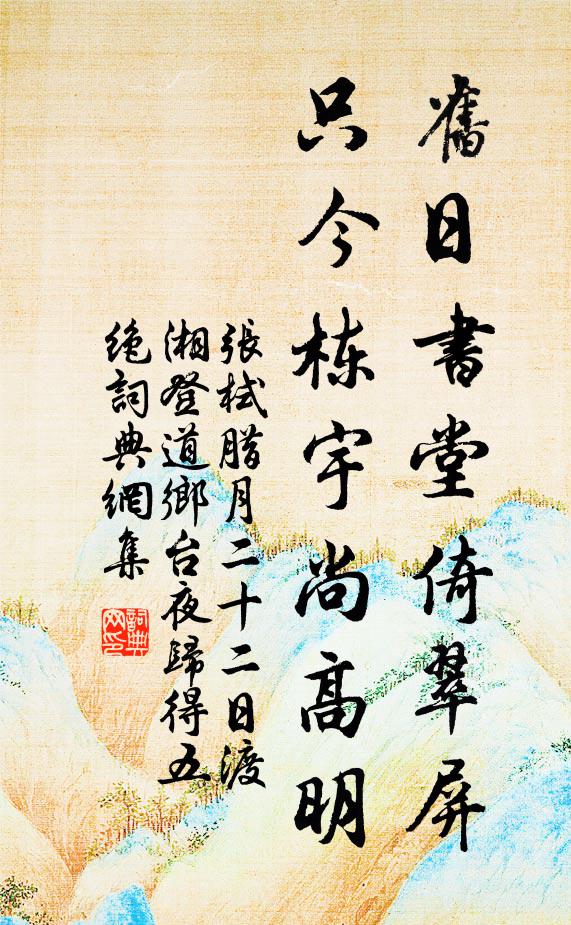 舊日書堂倚翠屏
只今栋宇尚高明
張栻腊月二十二日渡
湘登道鄉台夜歸得五
绝詞典網集
詞典网印